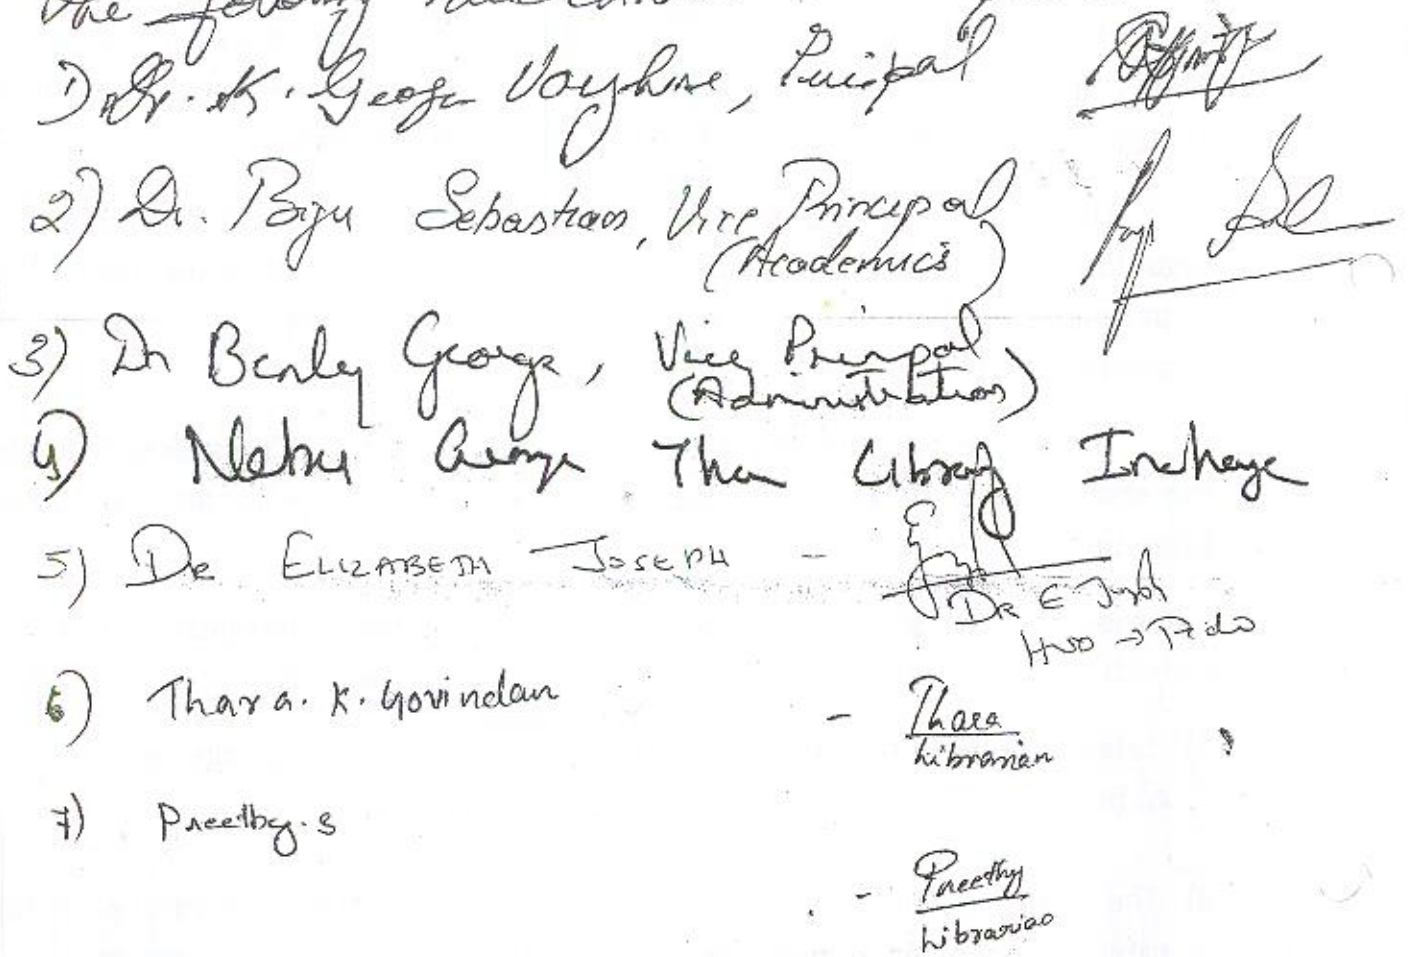 The following
1) Dr. K. George Varghese, Principal
2) Dr. Biju Sebastian, Vice Principal
(Academics)
3) Dr Benley George, Vice Principal
(Administration)
4) Nebu George Library Incharge
5) DR ELIZABETH JOSEPH -
DR E Joseph
HOD →
6) Thara. K. Govindan - Thara
Librarian
7) Preethy. S
- Preethy
Librarian